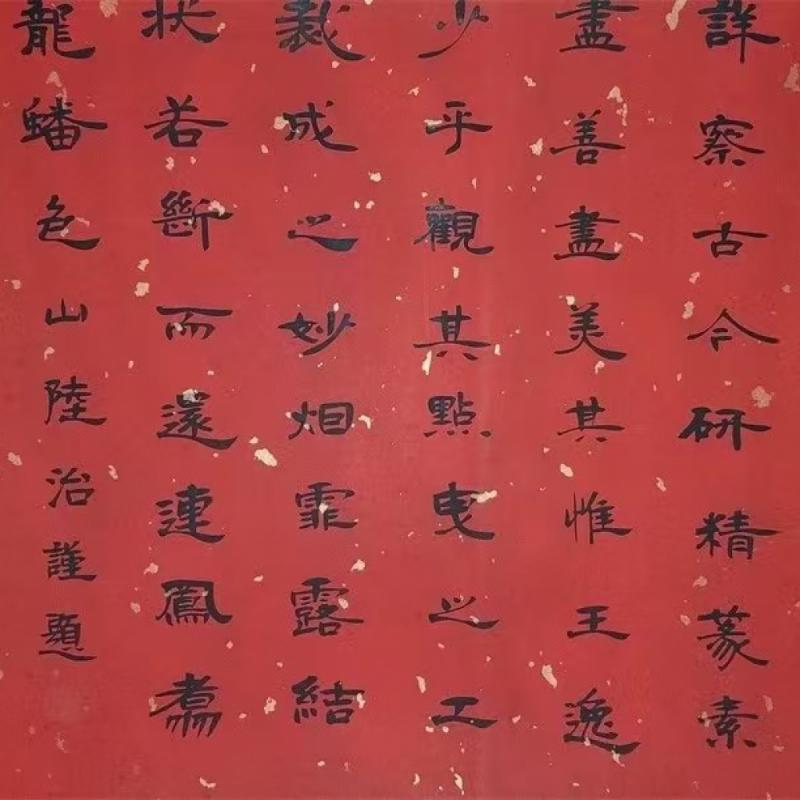 詳察古今研精篆素
盡善盡美其惟王逸
少乎觀其點曳之工
裁成之妙烟霏露結
狀若斷而還連鳳翥
龍蟠色山陸治謹題